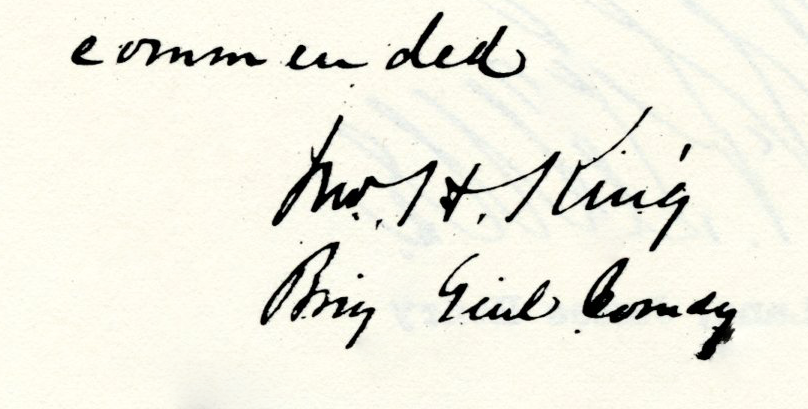 commended
Jno. H. King
Brig Genl Comdg